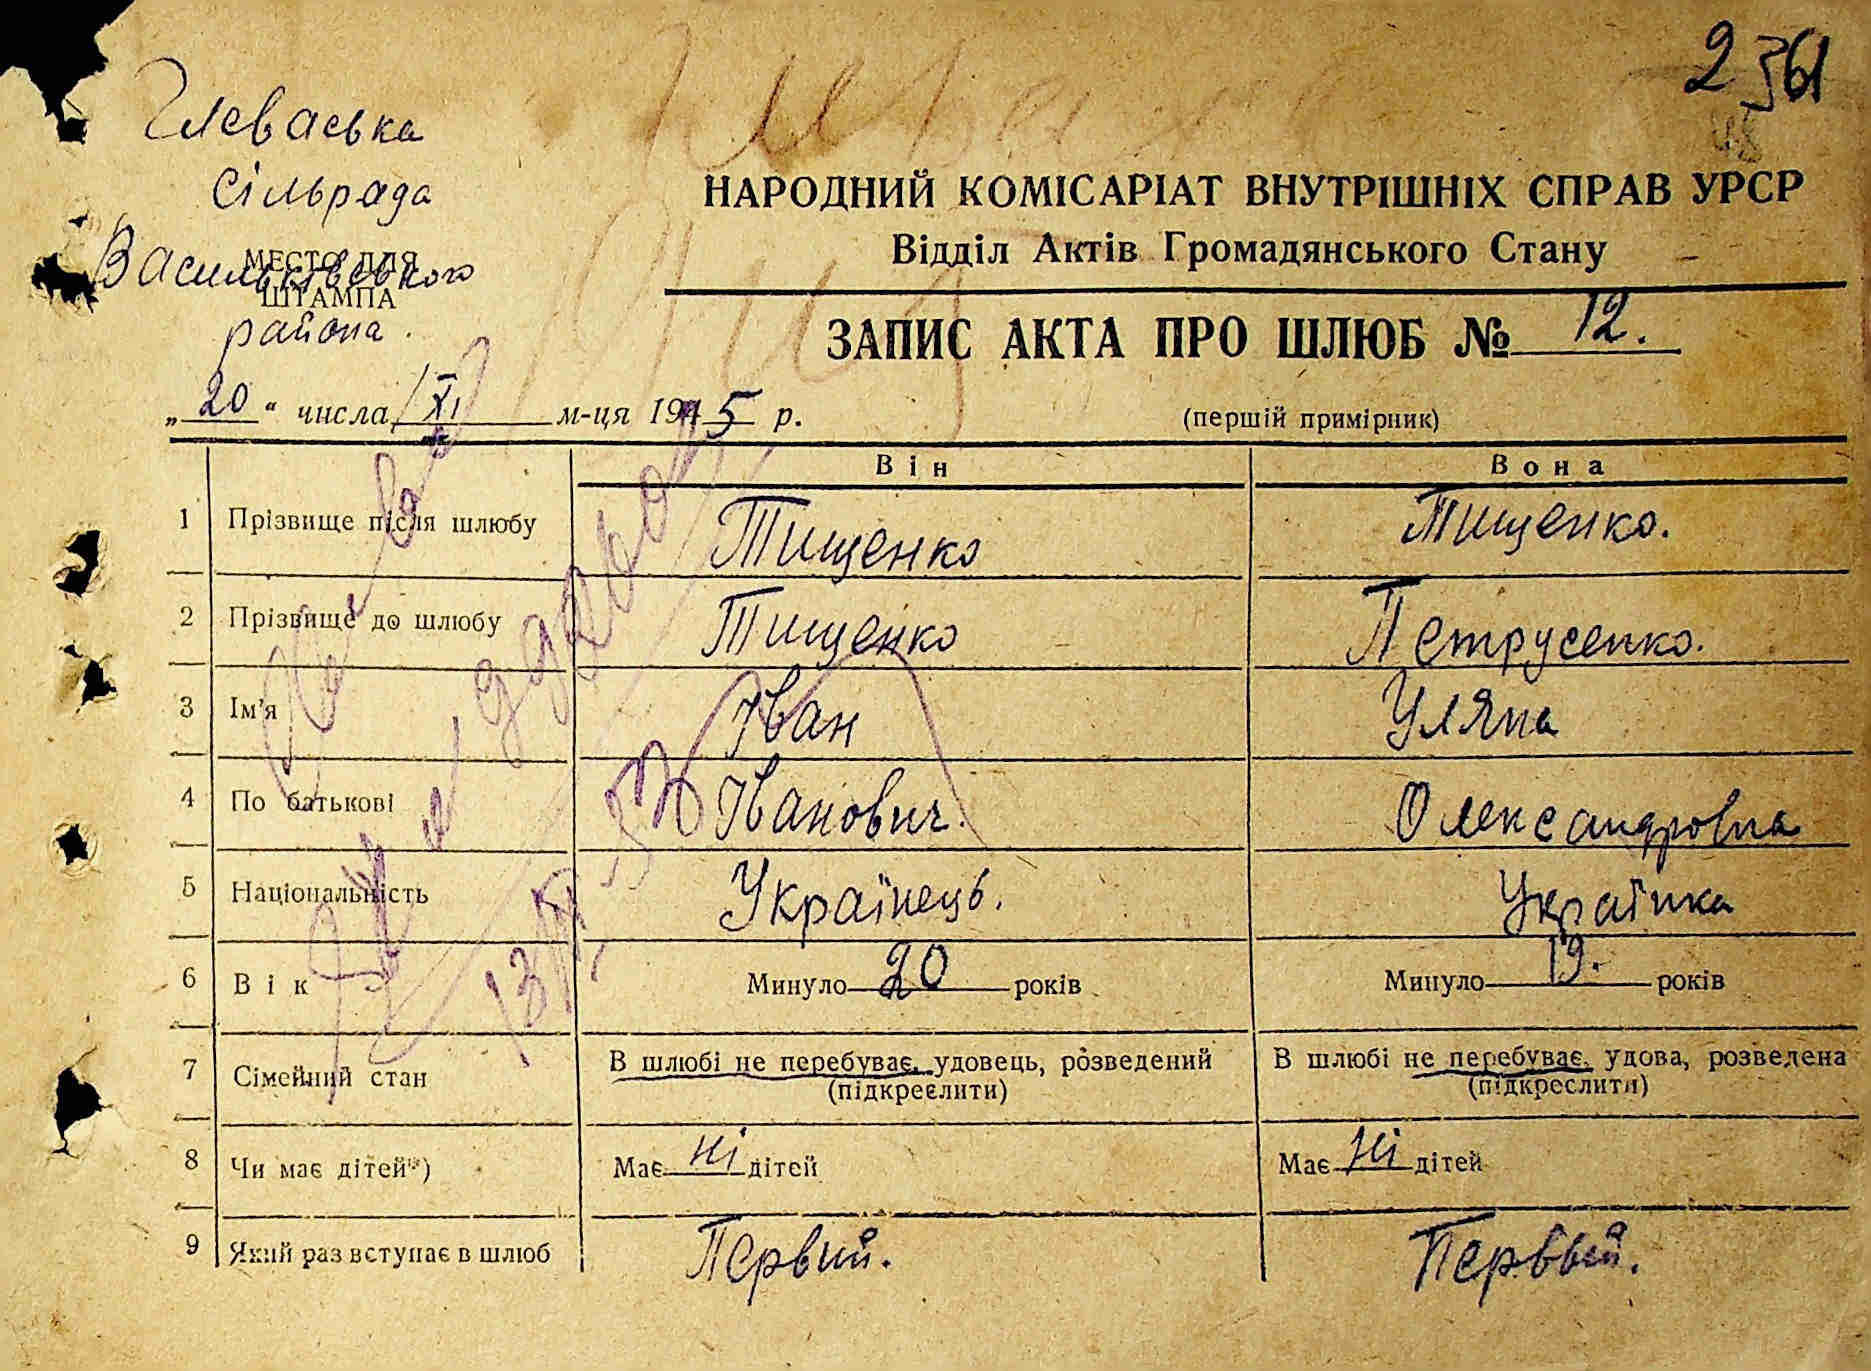 2 361
48
Глеваська
сільрада
Васильківського
района.
МЕСТО ДЛЯ
ШТАМПА
НАРОДНИЙ КОМІСАРІАТ ВНУТРІШНІХ СПРАВ УРСР
Відділ Актів Громадянського Стану
ЗАПИС АКТА ПРО ШЛЮБ № 12.
„20“ числа XI м-ця 1945 р.
(першій примірник)
Він Вона
1 Прізвище після шлюбу Тищенко Тищенко.
2 Прізвище до шлюбу Тищенко Петрусенко.
3 Ім'я Іван Уляна
4 По батькові Іванович. Олександровна
5 Національність Українець. Українка
6 Вік Минуло 20 років Минуло 19. років
7 Сімейний стан В шлюбі не перебуває, удовець, розведений (підкреслити) В шлюбі не перебуває, удова, розведена (підкреслити)
8 Чи має дітей*) Має ні дітей Має ні дітей
9 Який раз вступає в шлюб Первий. Первый.